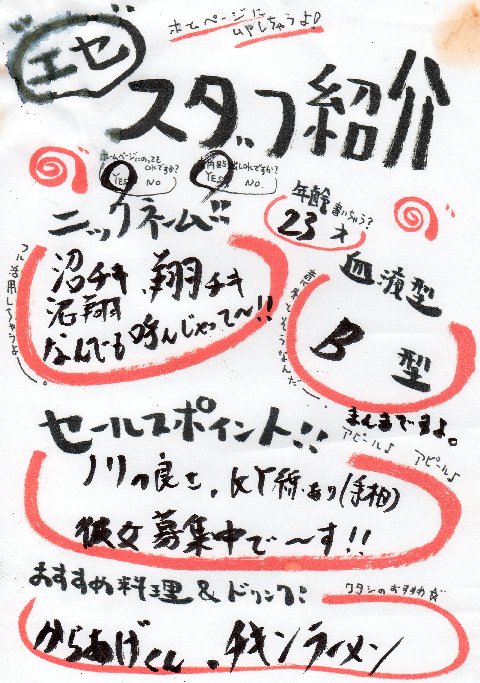 ホームページに
UPしちゃうよ!
エセ
スタッフ紹介
ホームページにのっても
OKですか?
YES NO
YES NO.
ニックネーム!!
年齢書いちゃう?
23才
フル活用しちゃうよ〜。
沼チキ、翔チキ
沼翔
なんでも呼んじゃって〜!!
血液型
B 型
まんまですよ。
セールスポイント!!
アピール♪ アピール♪
ノリの良さ、KY線あり(手相)
彼女募集中で〜す!!
おすすめ料理&ドリンク!
ワタシのおすすめだ
からあげくん、チキンラーメン